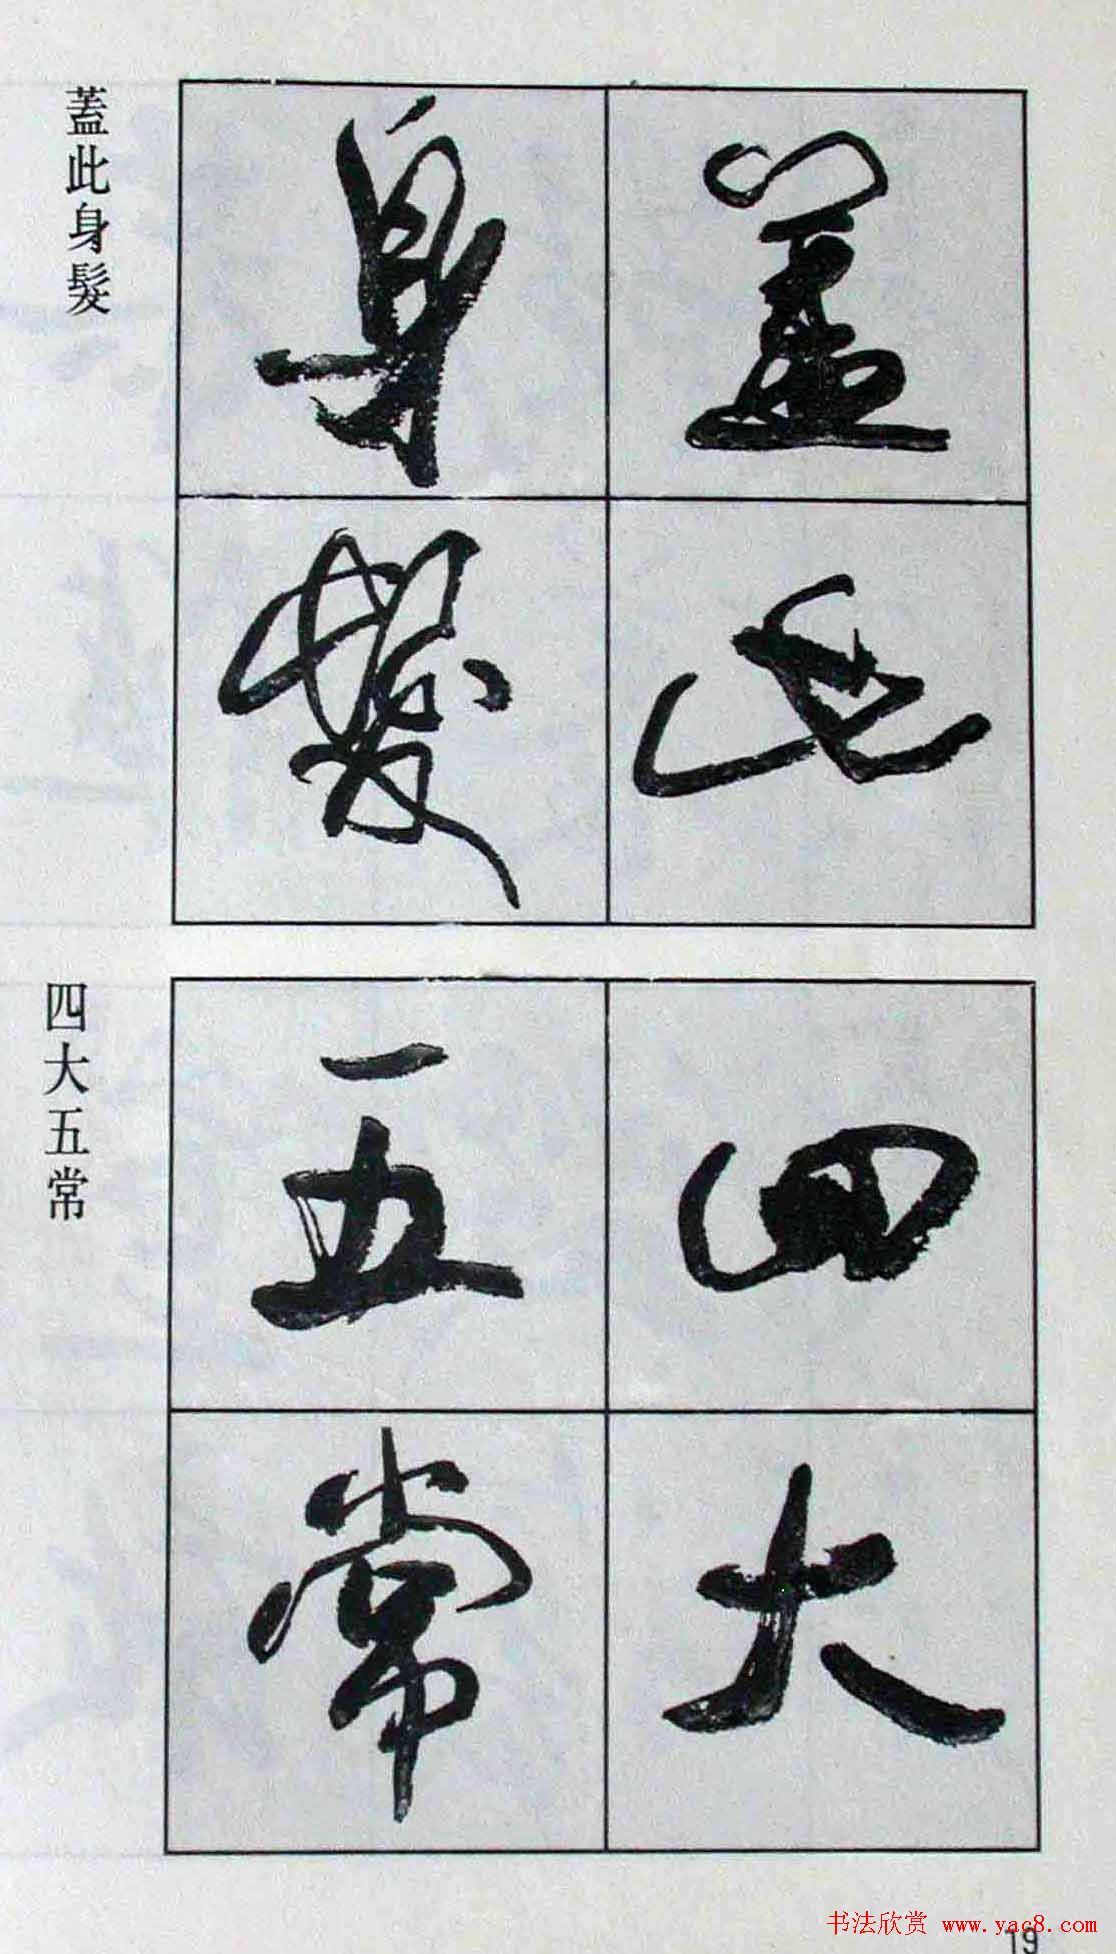 蓋此身髮
蓋此
身髮
四大五常
四大
五常
书法欣赏 www.yac8.com
19